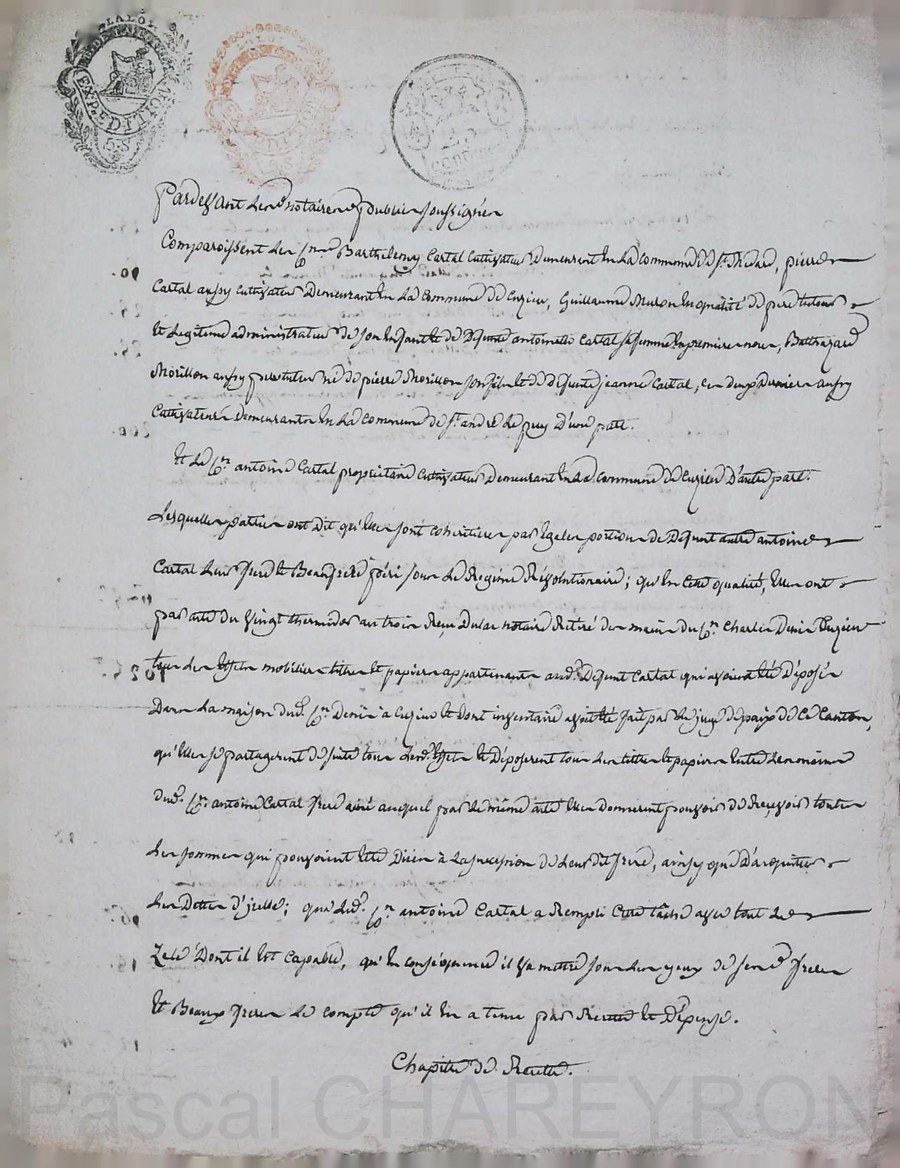 LA LOI
EXP.ED.ITION
5.S
Pardevant les notaires publics soussignés
Comparoissent les Cns Barthelemy Cartal Cultivateur Demeurent En La Commune de St. Medard, pierre
Cartal aussy Cultivateur Demeurant En La Commune de Cuzieu, Guillaume Mulon En qualité de pere tuteur
Et Legitime administrateur de Son Enfant Et de Defunte antoinette Cartal sa femme En premiere noce, Balthazard
Morillon aussy pere tuteur né de pierre Morillon son fils Et de Defunte jeanne Cartal, Ces deux Derniers aussy
Cultivateurs demeurants En La Commune de St. andré Le puy D'une part.
Et Le Cn. antoine Cartal proprietaire Cultivateur Demeurant En La Commune de Cuzieu D'autre part.
Lesquelles parties ont Dit qu'Elles sont Coheritieres par Egales portions de Defunt autre antoine
Cartal Leur frere Et Beaufrere péri sous Le Regime Révolutionaire; qu'En Cette qualité, Elles ont
par acte du Vingt thermidor an trois Reçu Dulac notaire Retiré des mains du Cn. Charles Denis Cuzieu
tous Les Effets mobiliers titres Et papiers appartenants aud. Defunt Cartal qui avoient Eté Déposés
Dans La maison dud. Cn. Denis à Cuzieu Et Dont inventaire avoit Eté fait par Le juge de paix de Ce Canton,
qu'Elles se partagerent de suite tous Lesd. Effets Et Déposerent tous Les titres Et papiers Entre Les mains
dud. Cn. antoine Cartal frere ainé auquel par Le même acte Elles donnerent pouvoir de Recevoir toutes
Les sommes qui pouvoient Etre Dües à La succession de Leur dit frere, ainsy que D'acquitter
Les Dettes d'jcelle; que Led. Cn. antoine Cartal a Rempli Cette tâche avec tout Le
Zele Dont il Est Capable, qu'En Conséquence il Va mettre sous Les yeux de ses freres
Et Beaux freres Le compte qu'il En a tenu par Recette Et Dépense.
Chapitre de Recette.
Pascal CHAREYRON